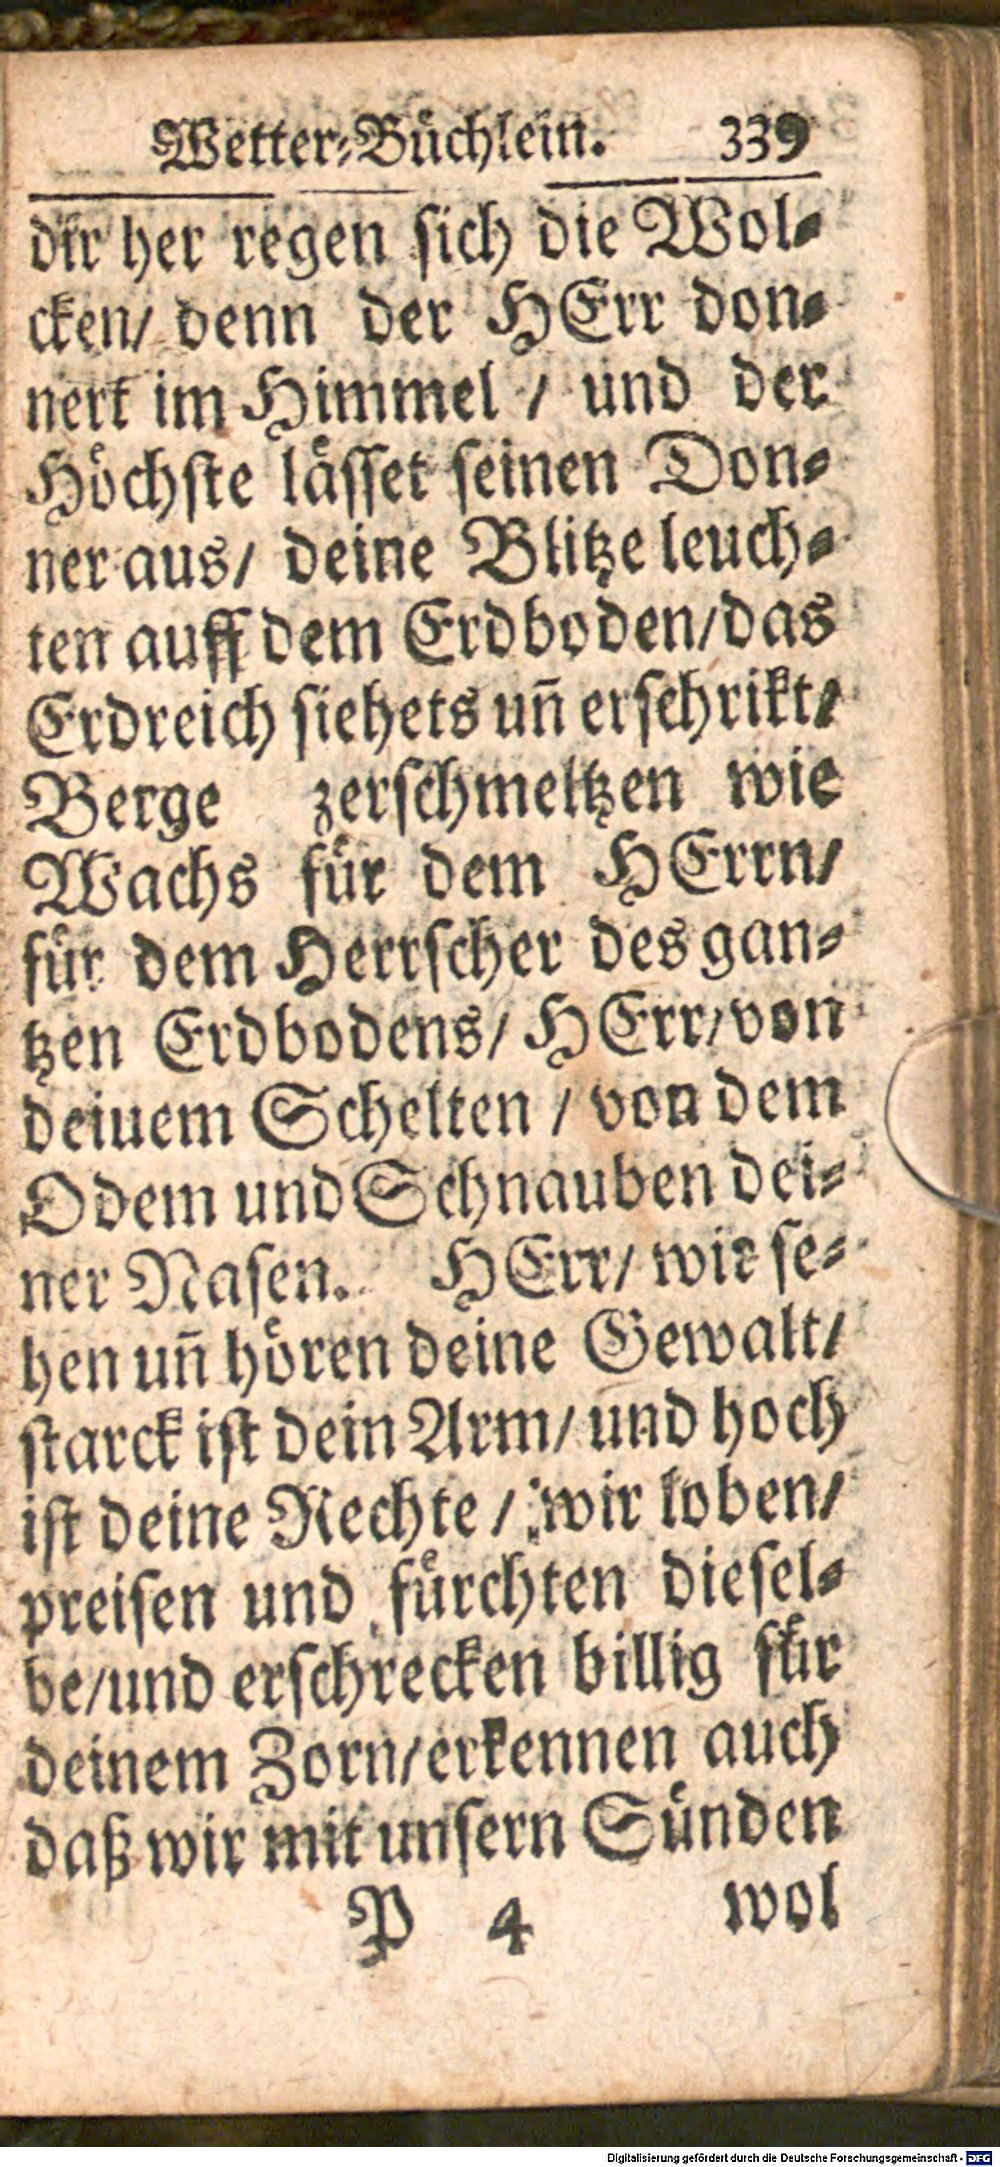 Wetter-Büchlein. 339
dir her regen sich die Wol-
cken/ denn der HErr don-
nert im Himmel / und der
Höchste lässet seinen Don-
ner aus/ deine Blitze leuch-
ten auff dem Erdboden/das
Erdreich siehets uñ erschrikt/
Berge zerschmeltzen wie
Wachs für dem HErrn/
für dem Herrscher des gan-
tzen Erdbodens/ HErr/von
deiuem Schelten / von dem
Odem und Schnauben dei-
ner Nasen. HErr/ wir se-
hen uñ hören deine Gewalt/
starck ist dein Arm/ und hoch
ist deine Rechte / wir loben/
preisen und fürchten diesel-
be/und erschrecken billig für
deinem Zorn/erkennen auch
daß wir mit unsern Sünden
P 4 wol
Digitalisierung gefördert durch die Deutsche Forschungsgemeinschaft - DFG